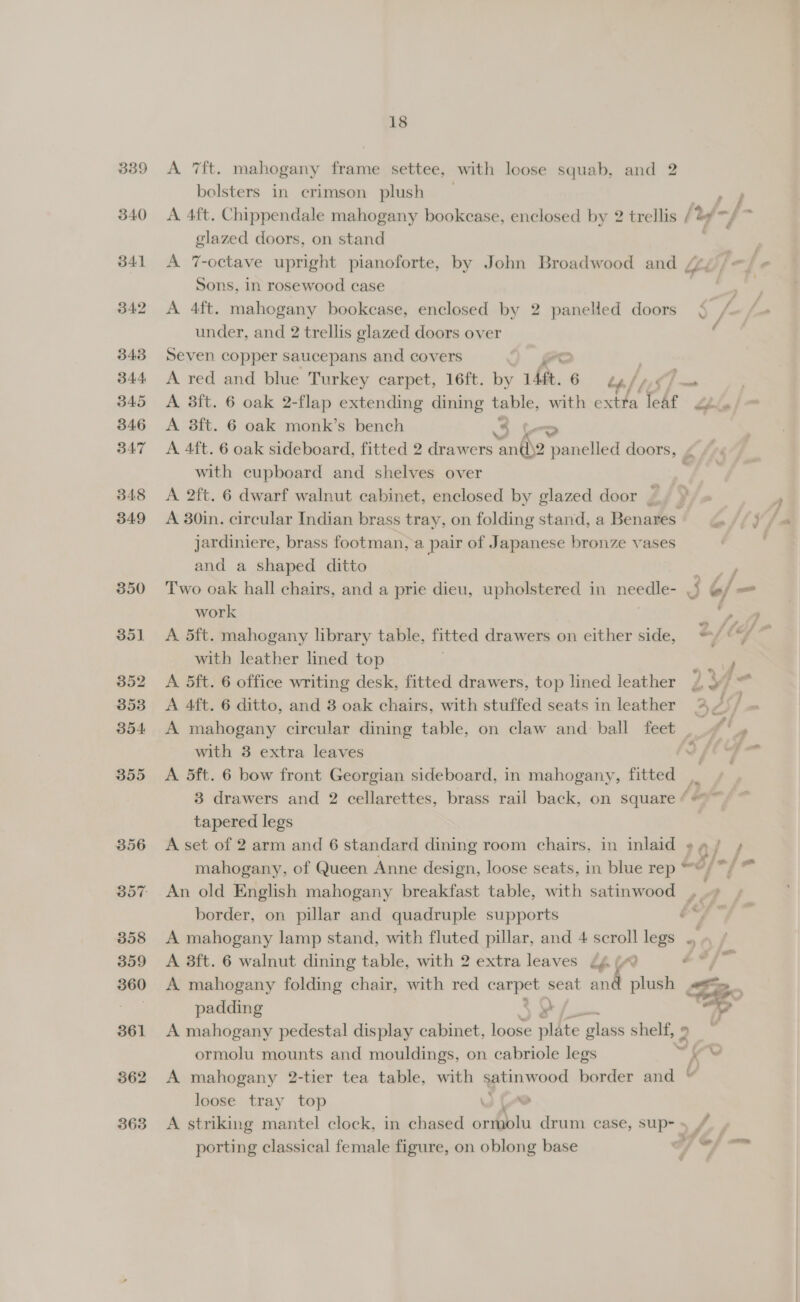 18
339 A 7ft. mahogany frame settee, with loose squab, and 2
bolsters in crimson plush
340 A 4ft. Chippendale mahogany bookcase, enclosed by 2 trellis
glazed doors, on stand
341 A 7-octave upright pianoforte, by John Broadwood and
Sons, in rosewood case
342 A 4ft. mahogany bookcase, enclosed by 2 panelled doors
under, and 2 trellis glazed doors over
343 Seven copper saucepans and covers
344 A red and blue Turkey carpet, 16ft. by 14ft. 6
345 A 3ft. 6 oak 2-flap extending dining table, with extra leaf
346 A 3ft. 6 oak monk's bench
347 A 4ft. 6 oak sideboard, fitted 2 drawers and 2 panelled doors,
with cupboard and shelves over
348 A 2ft. 6 dwarf walnut cabinet, enclosed by glazed door
349 A 30in. circular Indian brass tray, on folding stand, a Benares
jardiniere, brass footman, a pair of Japanese bronze vases
and a shaped ditto
350 Two oak hall chairs, and a prie dieu, upholstered in needle-
work
351 A 5ft. mahogany library table, fitted drawers on either side,
with leather lined top
352 A 5ft. 6 office writing desk, fitted drawers, top lined leather
353 A 4ft. 6 ditto, and 3 oak chairs, with stuffed seats in leather
354 A mahogany circular dining table, on claw and ball feet
with 3 extra leaves
355 A 5ft. 6 bow front Georgian sideboard, in mahogany, fitted
3 drawers and 2 cellarettes, brass rail back, on square
tapered legs
356 A set of 2 arm and 6 standard dining room chairs, in inlaid
mahogany, of Queen Anne design, loose seats, in blue rep
357 An old English mahogany breakfast table, with satinwood
border, on pillar and quadruple supports
358 A mahogany lamp stand, with fluted pillar, and 4 scroll legs
359 A 3ft. 6 walnut dining table, with 2 extra leaves
360 A mahogany folding chair, with red carpet seat and plush
padding
361 A mahogany pedestal display cabinet, loose plate glass shelf,
ormolu mounts and mouldings, on cabriole legs
362 A mahogany 2-tier tea table, with satinwood border and
loose tray top
363 A striking mantel clock, in chased ormolu drum case, sup-
porting classical female figure, on oblong base